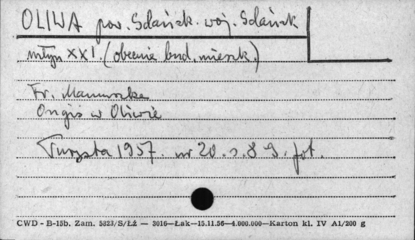 OLIWA pow. Gdańsk. woj. Gdańsk
młyn XXI. (obecnie bud. mieszk.)
Fr. Mamuszka
Ongiś w Oliwie
Turysta 1957. nr 20. s. 8 9. fot.
CWD - B-15b. Zam. 5823/S/ŁŻ — 3016—Łak—15.11.56—4.000.000—Karton kl. IV A1/200 g